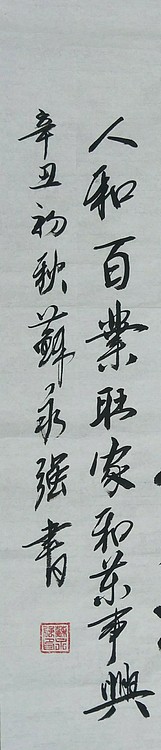 人和百業旺家和万事興
辛丑初秋蘇永强書